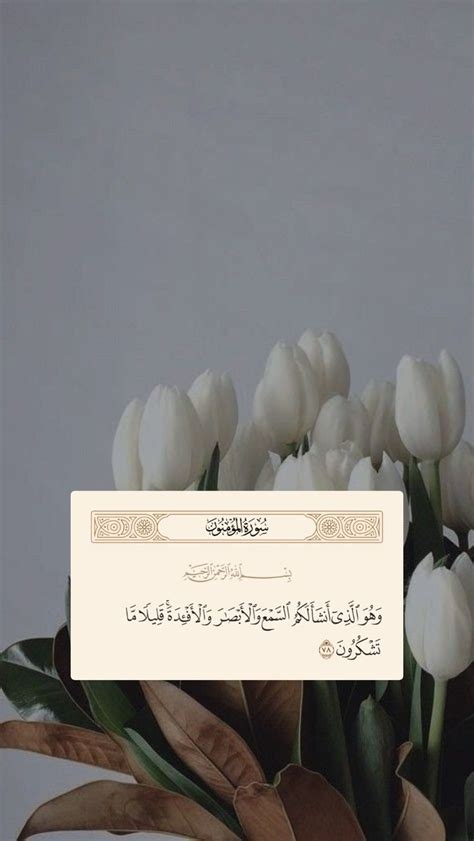 سُورَةُ المُؤْمِنُونَ
بِسْمِ ٱللَّهِ ٱلرَّحْمَٰنِ ٱلرَّحِيمِ
وَهُوَ ٱلَّذِىٓ أَنشَأَ لَكُمُ ٱلسَّمْعَ وَٱلْأَبْصَٰرَ وَٱلْأَفْـِٔدَةَ ۚ قَلِيلًا مَّا
تَشْكُرُونَ ٧٨